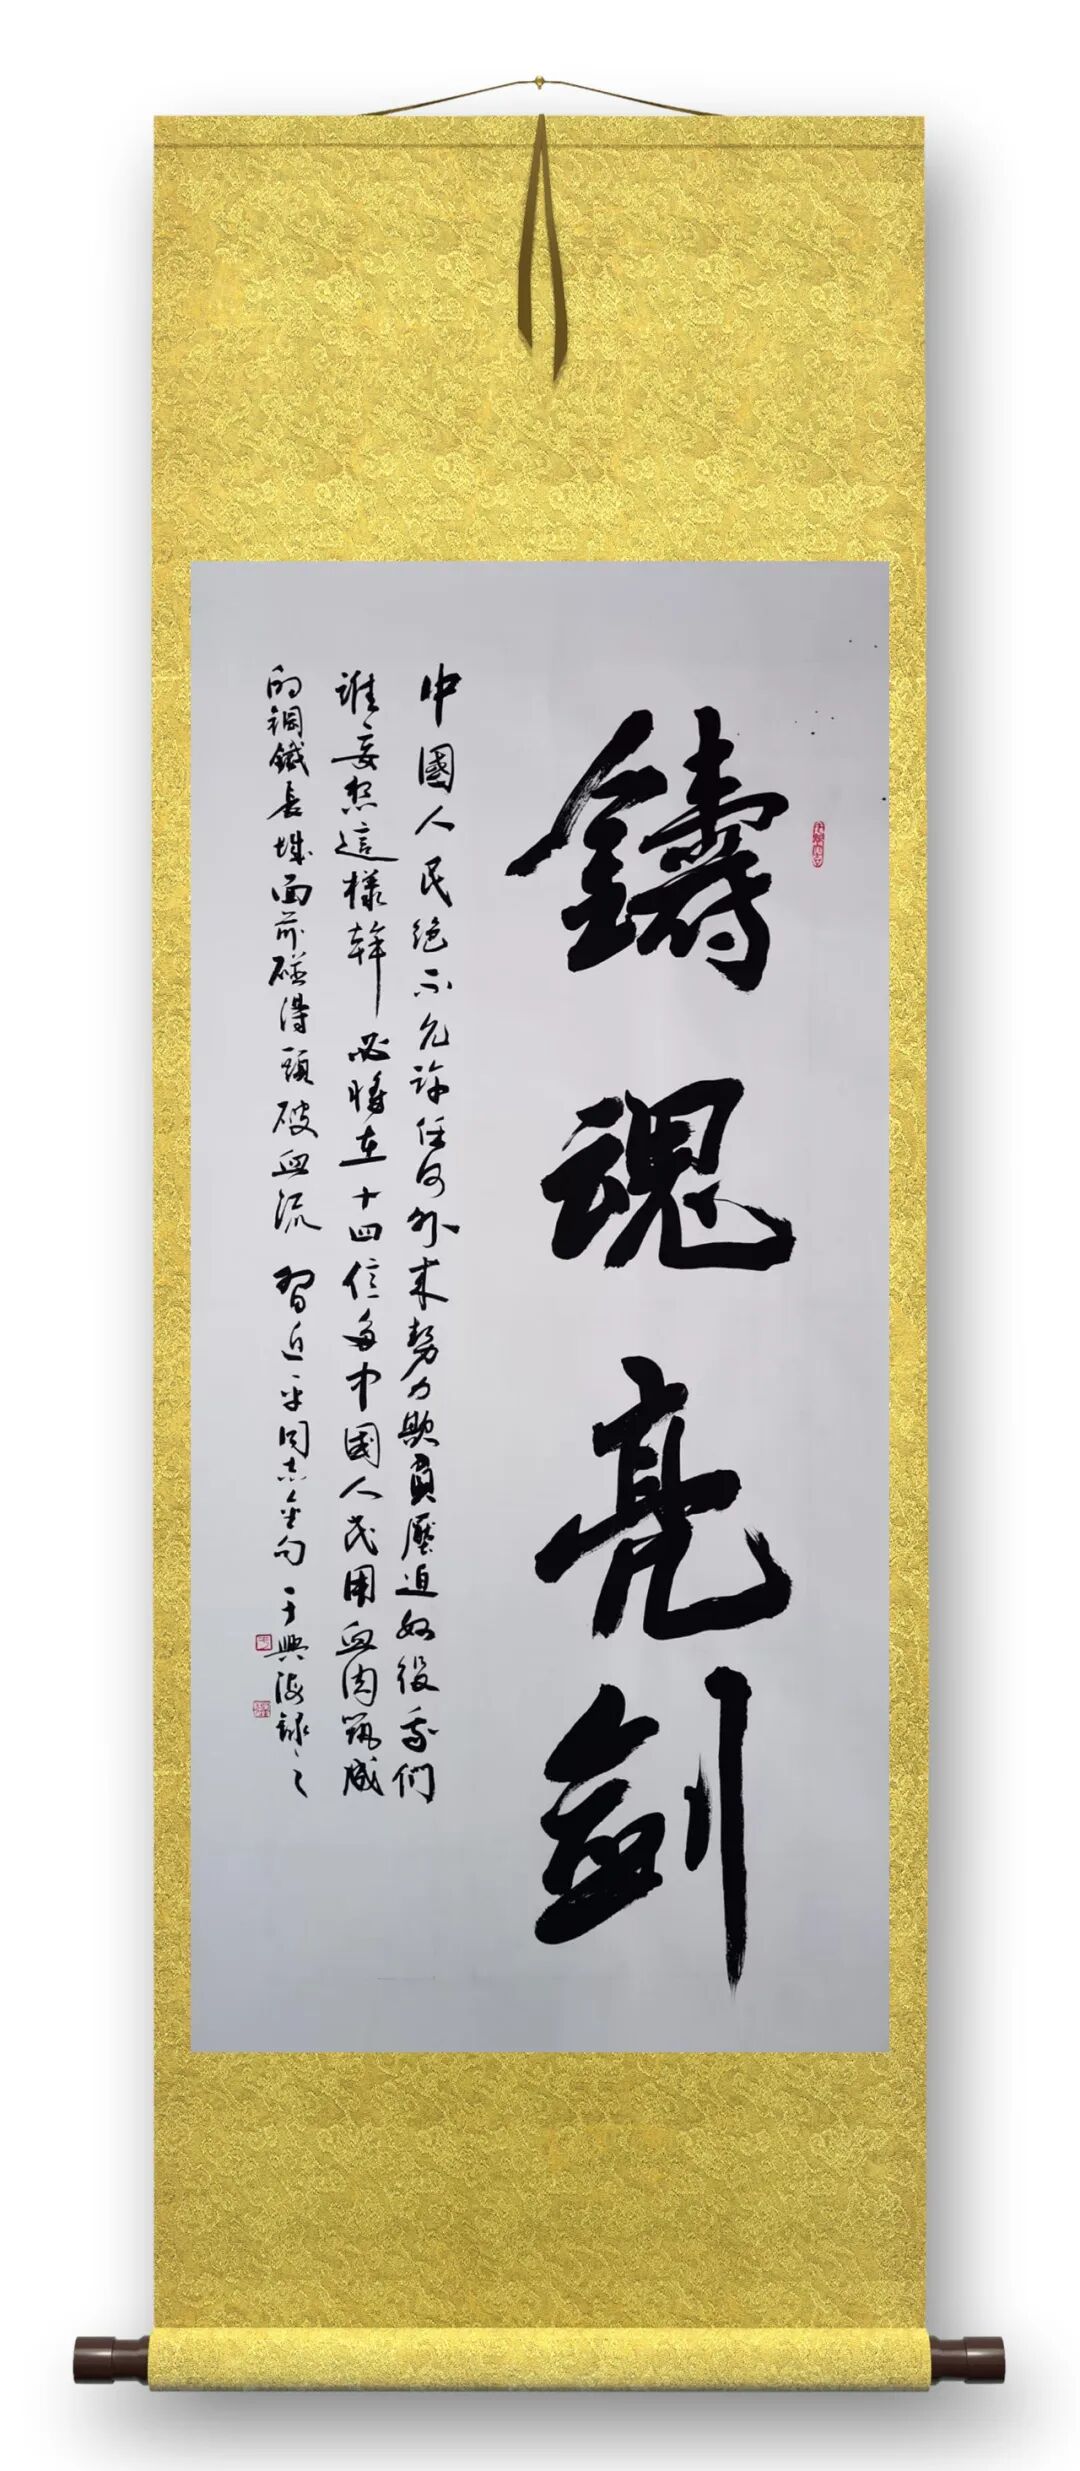 鑄魂亮剑
中國人民绝不允许任何外来势力欺負壓迫奴役我们
谁妄想這樣幹必将在十四億多中國人民用血肉築成
的钢鐵長城面前碰得頭破血流 習近平同志金句 于興海録之